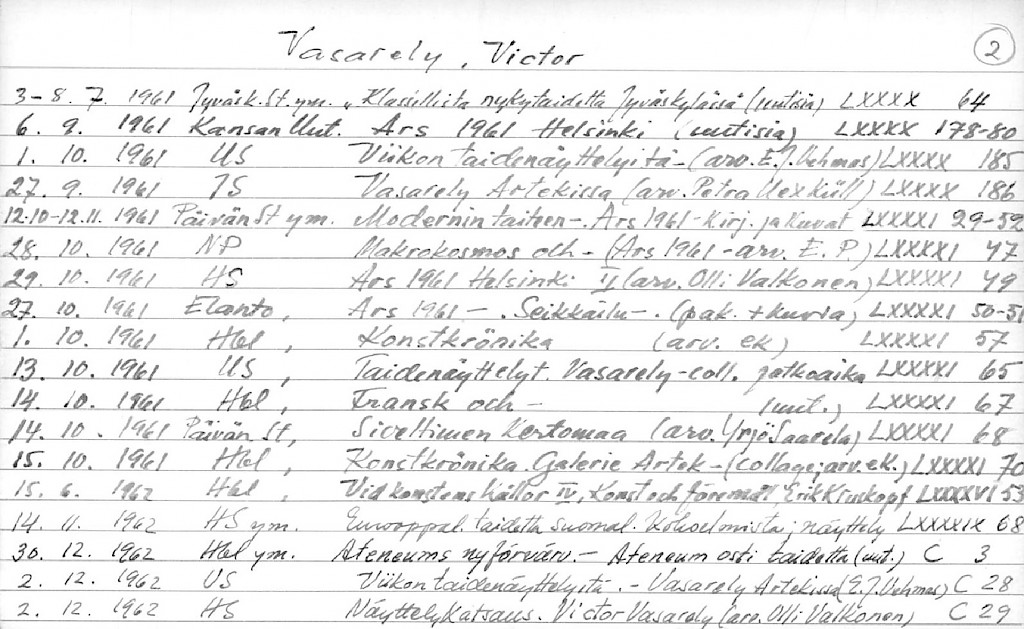 Vasarely, Victor 2
3-8. 7. 1961 Jyväsk. St. ym. "Klassillista nykytaidetta Jyväskylässä (uutisia) LXXXX 64
6. 9. 1961 Kansan Uut. Ars 1961 Helsinki (uutisia) LXXXX 178-80
1. 10. 1961 US Viikon taidenäyttelyitä - (arv. E.J. Vehmas) LXXXX 185
27. 9. 1961 IS Vasarely Artekissa (arv. Petra Uexküll) LXXXX 186
12.10-12.11. 1961 Päivän St ym. Modernin taiteen - Ars 1961 - Kirj. ja kuvat LXXXXI 29-52
28. 10. 1961 NP Makrokosmos och - (Ars 1961 - arv. E. P.) LXXXXI 47
29. 10. 1961 HS Ars 1961 Helsinki II (arv. Olli Valkonen) LXXXXI 49
27. 10. 1961 Elanto, Ars 1961 - . Seikkailu - . (pak. + kuvia) LXXXXI 50-51
1. 10. 1961 Hbl, Konstkrönika (arv. ek) LXXXXI 57
13. 10. 1961 US, Taidenäyttelyt. Vasarely-coll. jatkoaika LXXXXI 65
14. 10. 1961 Hbl, Fransk och - (uut.) LXXXXI 67
14. 10. 1961 Päivän St, Siveltimen kertomaa (arv. Yrjö Saarela) LXXXXI 68
15. 10. 1961 Hbl, Konstkrönika. Galerie Artek - (collage; arv. ek.) LXXXXI 70
15. 6. 1962 Hbl, Vid konstens källor IV, Konst och föremål, Erik Kruskopf LXXXXVI 53
14. 11. 1962 HS ym. Eurooppal. taidetta suomal. kokoelmista; näyttely LXXXXIX 68
30. 12. 1962 Hbl ym. Ateneums nyförvärv - Ateneum osti taidetta (uut.) C 3
2. 12. 1962 US Viikon taidenäyttelyitä. - Vasarely Artekissa (E.J. Vehmas) C 28
2. 12. 1962 HS Näyttelykatsaus. Victor Vasarely (arv. Olli Valkonen) C 29